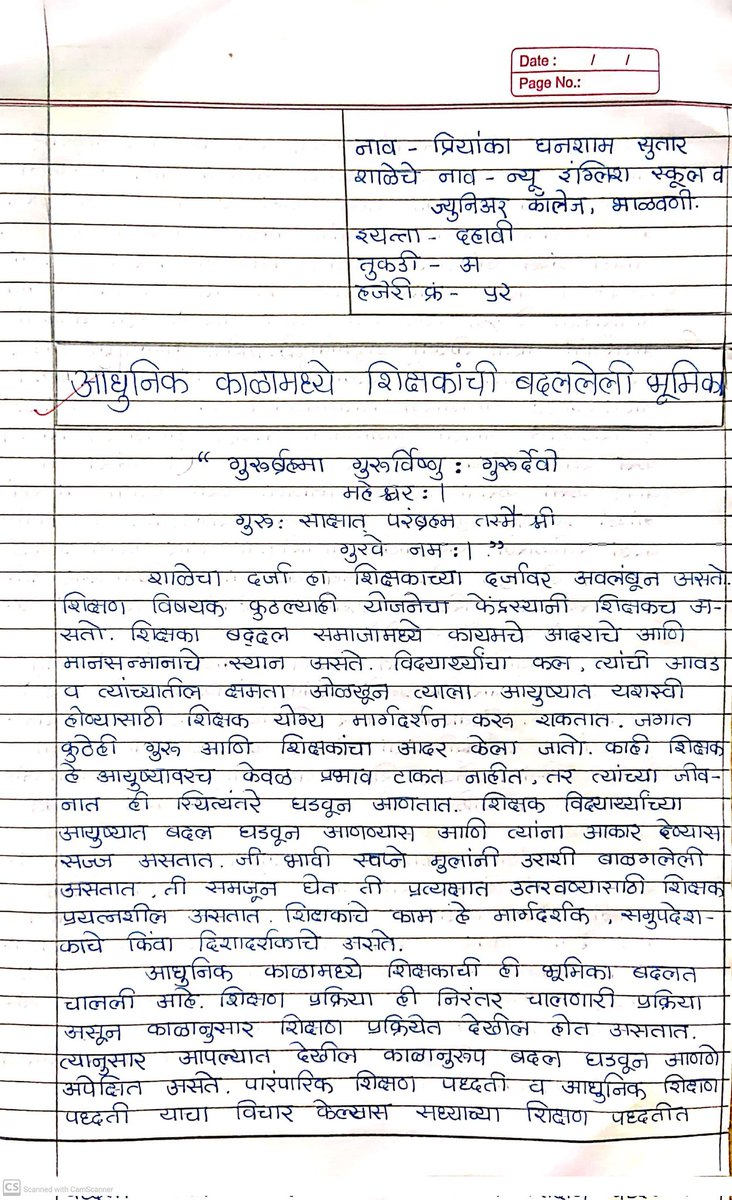 Date : / /
Page No.:
नाव - प्रियांका घनशाम सुतार
शाळेचे नाव - न्यू इंग्लिश स्कूल व
ज्युनिअर कॉलेज, भाळवणी.
इयत्ता - दहावी
तुकडी - अ
हजेरी क्रं - ५२
आधुनिक काळामध्ये शिक्षकांची बदललेली भूमिका
“ गुरुर्ब्रह्मा गुरुर्विष्णु : गुरुर्देवो
महेश्वर : |
गुरु : साक्षात् परंब्रह्म तस्मै श्री
गुरवे नम : | ”
शाळेचा दर्जा हा शिक्षकाच्या दर्जावर अवलंबून असतो.
शिक्षण विषयक कुठल्याही योजनेचा केंद्रस्थानी शिक्षकच अ-
सतो. शिक्षका बद्दल समाजामध्ये कायमचे आदराचे आणि
मानसन्मानाचे स्थान असते. विद्यार्थ्यांचा कल, त्यांची आवड
व त्यांच्यातील क्षमता ओळखून त्याला आयुष्यात यशस्वी
होण्यासाठी शिक्षक योग्य मार्गदर्शन करू शकतात. जगात
कुठेही गुरु आणि शिक्षकांचा आदर केला जातो. काही शिक्षक
हे आयुष्यावरच केवळ प्रभाव टाकत नाहीत, तर त्यांच्या जीव-
नात ही स्थित्यंतरे घडवून आणतात. शिक्षक विद्यार्थ्यांच्या
आयुष्यात बदल घडवून आणण्यास आणि त्यांना आकार देण्यास
सज्ज असतात. जी भावी स्वप्ने मुलांनी उराशी बाळगलेली
असतात, ती समजून घेत ती प्रत्यक्षात उतरवण्यासाठी शिक्षक
प्रयत्नशील असतात. शिक्षकांचे काम हे मार्गदर्शक, समुपदेश-
काचे किंवा दिशादर्शकाचे असते.
आधुनिक काळामध्ये शिक्षकाची ही भूमिका बदलत
चालली आहे. शिक्षण प्रक्रिया ही निरंतर चालणारी प्रक्रिया
असून काळानुसार शिक्षण प्रक्रियेत देखील होत असतात.
त्यानुसार आपल्यात देखील काळानुरुप बदल घडवून आणणे
अपेक्षित असते. पारंपारिक शिक्षण पध्दती व आधुनिक शिक्षण
पध्दती याचा विचार केल्यास सध्याच्या शिक्षण पध्दतीत
CS Scanned with CamScanner